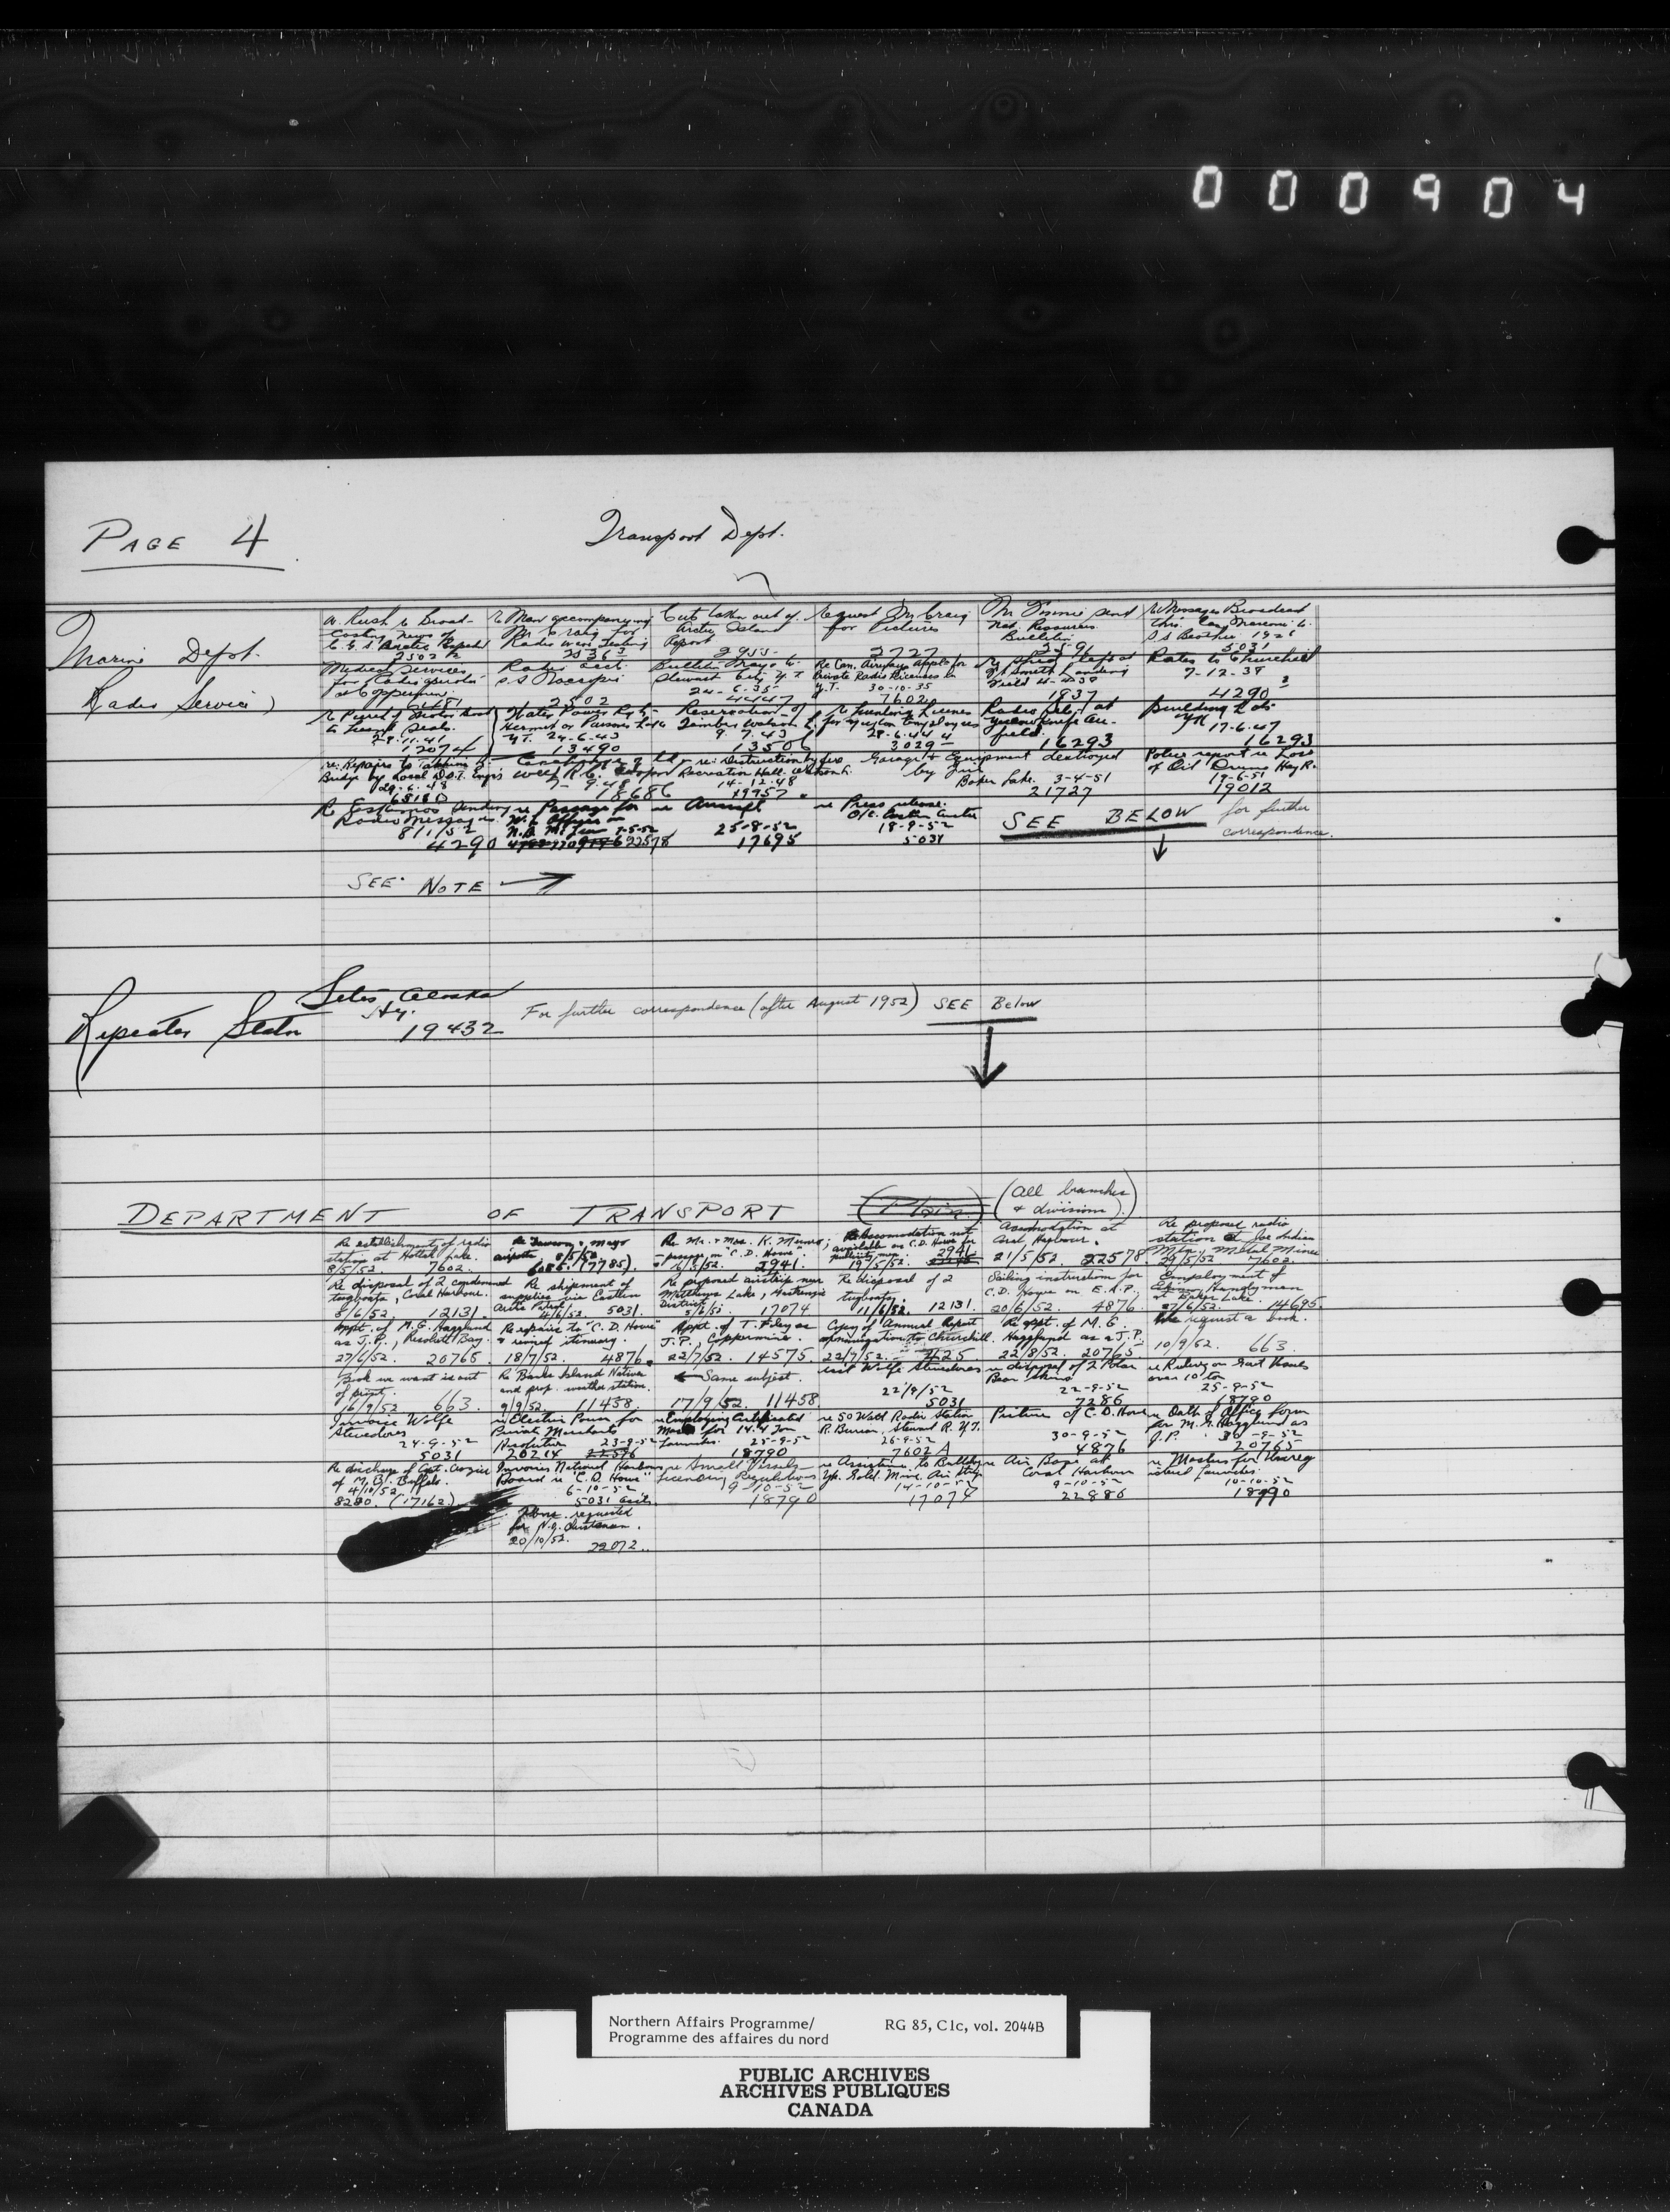 000904
PAGE 4
Transport Dept.
Marine Dept.
Radio Service)
W. Rush to Broad-
casting news of
C.G.S. Arctic Exped
2502 1/2
Re Man accompanying
Mr Craig for
Radio
Cuts taken out of
Arctic Island
Report
2955
Request Mr Craig
for Pictures
2727
Mr Finnie send
Nat. Resources
Bulletin
2591
Re Messages Broadcast
thro. Can Marconi Co.
S S Beothic 1928
5031
Medical Services
for Radio operator
at Coppermine.
6481
Radio
S.S. Nascopie
2502
Bulletin Mayo &
Stewart City Y T
24-6-35
4447
Re Can. Airways Appl. for
Private Radio Licences in
Y.T. 30-10-35
7602
Ft Smith Landing
Field 4-4-39
1837
Rates to Churchill
7-12-39
4290
28-11-41
12074
Water Power
Y.T. 24-6-43
13490
Reservation of
Timber Watson L
9.7.43
13506
Re Hunting Licence
28-6-44
3029
Radio at
Yellowknife Air-
field.
16293
Building Lots
YK 17-6-47
16293
re: Repairs to
Bridge by Local D.O.T. Eng'rs
29-6-48
7-9-48
18686
re: Distribution by
Recreation Hall
14-12-48
19957
Garage & Equipment destroyed
by Fire
Baker Lake. 3-4-51
21727
Police report re Loss
of Oil Drums Hay R.
19-6-51
19012
Re Eskimos sending
Radio Messages
8/1/52
4290
re Passage for
N.A. McLean 7-5-52
22578
re Aircraft
25-8-52
17695
re Press release.
O/C. Eastern Arctic
18-9-52
5031
SEE BELOW for further
correspondence.
SEE NOTE
Repeater Station
Sites Alaska
Hy.
19432
For further correspondence (after August 1952) SEE Below
DEPARTMENT OF TRANSPORT (All branches
& divisions).
Re establishment of radio
station at Hottah Lake.
8/5/52. 7602.
Re Dawson & Mayo
airports 8/5/52
6086. (7785)
Re Mr. & Mrs. K. Munro;
passage on "C.D. Howe".
6/5/52. 2941.
Re Accomodation not
available on C.D. Howe for
publicity man.
19/5/52. 2941
Accomodation at
Coral Harbour.
21/5/52 22578
Re proposed radio
station at Joe Indian
Mtn. Metal Mines
29/5/52. 7602.
Re disposal of 2 condemned
tugboats, Coral Harbour.
2/6/52. 12131.
Re shipment of
supplies via Eastern
Arctic Patrol
4/6/52. 5031.
Re proposed airstrip near
Matthews Lake, Mackenzie
District.
17074
Re disposal of 2
tugboats.
11/6/52. 12131.
Sailing instructions for
C.D. Howe on E.A.P.
20/6/52. 4876.
Employment of
Eskimo Handyman
at Baker Lake.
27/6/52. 14695.
Appt. of M.G. Hagglund
as J.P., Resolute Bay.
27/6/52. 20765
Re repairs to "C.D. Howe"
& revised itinerary.
18/7/52. 4876.
Appt. of T. Filey as
J.P. Coppermine.
22/7/52. 14575.
Copy of Annual Report
22/7/52. 425
Re appt. of M.G.
Hagglund as a J.P.
22/8/52. 20765
We request a book.
10/9/52. 663.
Book we want is out
of print.
16/9/52 663.
Re Banks Island Natives
and prop. weather station.
9/9/52. 11458.
Same subject.
17/9/52. 11458
Wolfe Stevedores
22/9/52
5031
re disposal of 2 Polar
Bear Skins
22-9-52
7286
re Ruling on Govt Vessels
over 10 ton
25-9-52
18790
Invoice Wolfe
Stevedores
24-9-52
5031
re Electric Power for
Private Merchants
Resolution 23-9-52
20214
re Employing Certificated
Master for 14.4 Ton
Launches. 25-9-52
18790
re 50 Watt Radio Station
R. Burian, Stewart R. Y.T.
26-9-52
7602 A
Picture of C.D. Howe
30-9-52
4876
re Oath of Office Form
for M.G. Hagglund as
J.P. 30-9-52
20765
Re discharge of Capt.
of M.B. Buffalo.
4/10/52.
8280. (17162)
Invoices National Harbours
Board re "C.D. Howe"
6-10-52
5031
re Small Vessels
Licencing Regulations
9-10-52
18790
re Assistance to Bulldoze
Yk. Gold Mine Air Strip
14-10-52
17074
re Air Base at
Coral Harbour
9-10-52
22886
re Masters for Unreg
istered Launches
10-10-52
18790
requested
for N.G. Christensen.
20/10/52. 22072.
Northern Affairs Programme/
Programme des affaires du nord
RG 85, C1c, vol. 2044B
PUBLIC ARCHIVES
ARCHIVES PUBLIQUES
CANADA